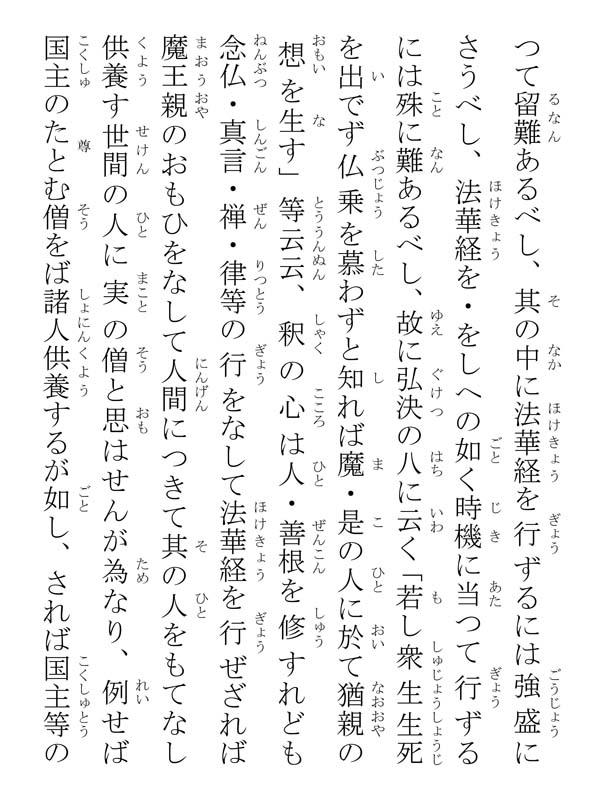 つて留難あるべし、其の中に法華経を行ずるには強盛に
さうべし、法華経を・をしへの如く時機に当つて行ずる
には殊に難あるべし、故に弘決の八に云く「若し衆生生死
を出でず仏乗を慕わずと知れば魔・是の人に於て猶親の
想を生す」等云云、釈の心は人・善根を修すれども
念仏・真言・禅・律等の行をなして法華経を行ぜざれば
魔王親のおもひをなして人間につきて其の人をもてなし
供養す世間の人に実の僧と思はせんが為なり、例せば
国主のたとむ僧をば諸人供養するが如し、されば国主等の